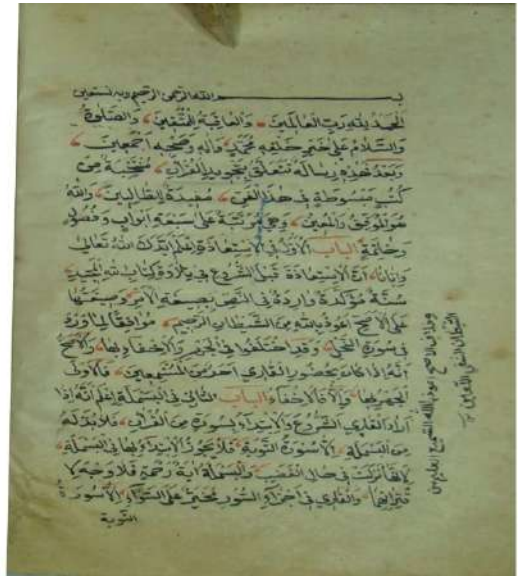 بسم الله الرحمن الرحيم وبه نستعين
الحمد لله رب العالمين والعاقبة للمتقين والصلوة
والسلام على خير خلقه محمد وآله وصحبه اجمعين
وبعد فهذه رسالة تتعلق بتجويد القرآن منتخبة من
كتب مبسوطة في هذا الفن مفيدة للطالبين والله
هو الموفق والمعين وهي مرتبة على سبعة ابواب وفصول
وخاتمة الباب الاول في الاستعاذة اعلم ان الله تعالى
وايانا ان الاستعاذة قبل الشروع في تلاوة كتاب الله المجيد
سنة مؤكدة واردة في النص بصيغة الامر وصيغتها
على الاصح اعوذ بالله من الشيطان الرجيم موافقا لما ورد
في سورة النحل وقد اختلفوا في الجهر والاخفاء بها والاصح
انه اذا كان بحضور القارئ احد من المستمعين فالاولى
الجهر بها والا فالاخفاء الباب الثاني في البسملة اعلم انه اذا
اراد القارئ الشروع والابتداء بسورة من القرآن فلا بد له
من البسملة الا سورة التوبة فلا يجوز الابتداء بها في البسملة
لانها نزلت في حال الغضب والبسملة آية رحمة فلا وجه لا
والقارئ في اجزاء السور مخير على السواء الا سورة
التوبة
وخلاف الاصح اعوذ بالله السميع العليم من
الشيطان